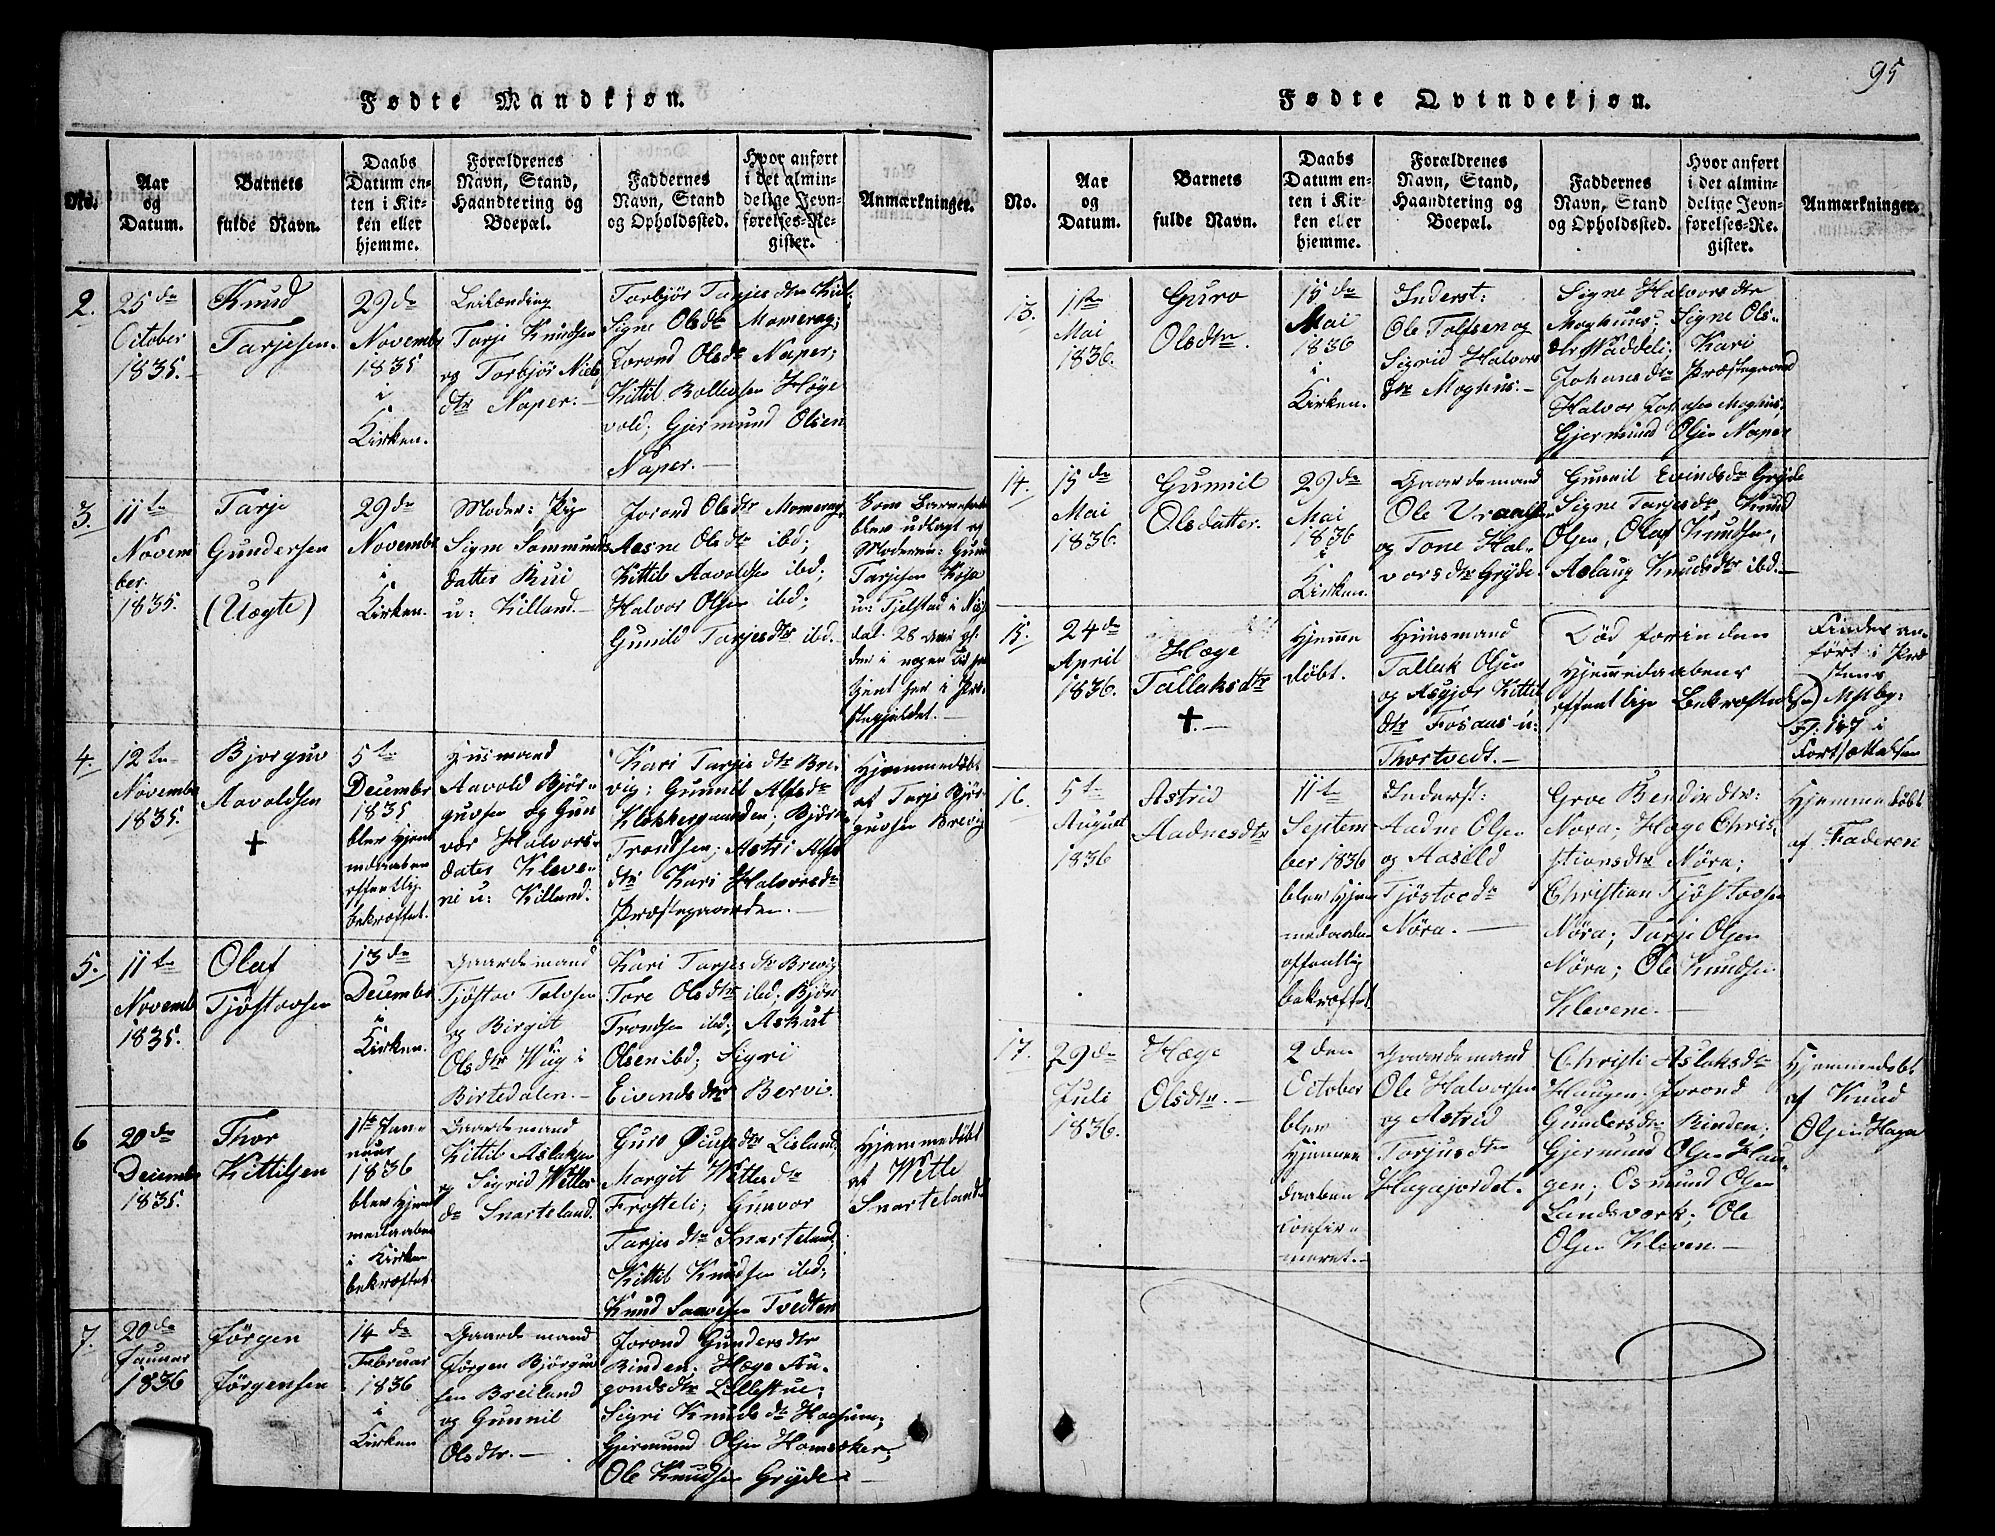 95
Fødte Mandkjøn.
No.
Aar
og
Datum.
Barnets
fulde Navn.
Daabs
Datum en-
ten i Kir-
ken eller
hjemme.
Forældrenes
Navn, Stand,
Haandtering og
Boepæl.
Faddernes
Navn, Stand
og Opholdssted.
Hvor anført
i det almin-
delige Jevn-
førelses-Re-
gister.
Anmærkninger.
2.
25de
October
1835.
Knud
Tarjesen.
29de
Novembr
1835
i
Kirken.
Leilænding
Tarje Knudsen
og Torbjør Niels
dtr Naper.
Torbjør Tarjesdtr
Signe Olsdtr Momerag;
Jorond Olsdtr Naper;
Kittil Høge
vold; Gjermund Olsen
Naper.
3.
11te
Novem
ber.
1835.
Tarje
Gundersen
(Uægte)
29de
Novembr
i
Kirken.
Moder: Pige
Signe Sammunds
datter Rui
u: Killand.
Jorond Olsdtr Momerag
Aasne Olsdtr ibd;
Kittil Aavoldsen ibd;
Halvor Olsen ibd;
Gunild Tarjesdtr ibd.
Som Barnefader
blev udlagt af
Moderen: Gund
Tarjesen
u: Tjelstad i
dal. 28
den i nogen Tid
tjent her i Præ
stegjeldet.
4.
12te
Novembr
1835.
Bjorguv
Aavoldsen
+
5te
Decembr
1835
blev Hjem
medaaben
offentlig
bekræftet.
Huusmand
Aavold Björ-
guvsen og Gun
vor Halvors-
datter Kleve-
ni u: Killand.
Kari Tarjesdtr Bre
vig; Gunnil Alfsdtr
Klokkergaarden; Björn
Trondsen; Astri Alfs
dtr Kari Halvorsdtr
Præstegaarden.
Hjemmedøbt
af Tarje Björ-
guvsen Brevig
5.
11te
Novemb
1835.
Olaf
Tjöstovsen
13de
Decembr
i
Kirken.
Gaardemand
Tjöstov Tolvsen
og Birgit
Olsdtr Wiig i
Birtedalen.
Kari Tarjesdtr Brevig
Tore Olsdtr ibd; Björn
Trondsen ibd; Askut
Olsen ibd; Sigri
Eivendsdtr Bervi.
6
20de
Decembr
1835.
Thor
Kittilsen
1te Jan-
nuar
1836
blev Hjem
medaaben
i Kirken
bekræftet.
Gaardemand
Kittil Aslaksen
og Sigrid Wetles
dtr Snarteland.
Guro dtr Lisland,
Margit Wetlesdtr
Frosteli; Gunvor
Tarjesdtr Snarteland;
Kittil Knudsen ibd;
Knud Saavesen Tvedten
Hjemmedøbt
af Wetle
Snarteland
7.
20de
Januar
1836
Jörgen
Jörgensen
14de
Februar
1836
i
Kirken
Gaardemand
Jörgen Björguv
sen Breiland
og Gunnil
Olsdtr.
Jorond Gundersdtr
Rinden; Hæge Au-
gondsdtr Lillestue;
Sigri Knudsdtr
Gjermund Olsen
Ole Knudsen Gryde
Fødte Qvindekjøn.
No.
Aar
og
Datum.
Barnets
fulde Navn.
Daabs
Datum en-
ten i Kir-
ken eller
hjemme.
Forældrenes
Navn, Stand,
Haandtering og
Boepæl.
Faddernes
Navn, Stand
og Opholdssted.
Hvor anført
i det almin-
delige Jevn-
førelses-Re-
gister.
Anmærkninger.
13.
1ste
Mai
1836.
Guro
Olsdtr.
15de
Mai
1836
i
Kirken.
Inderst:
Ole Tolfsen og
Sigrid Halvors
dtr Moghus.
Signe Halvorsdtr
Moghus; Signe Ols-
dtr Waddeli; Kari
Johansdtr Præstegaard
Halvor Moghus;
Gjermund Olsen Naper
14.
15de
Mai
1836.
Gunnil
Olsdatter.
29de
Mai
1836
i
Kirken.
Gaardemand
Ole
og Tone Hal-
vorsdtr Gryde.
Gunnil Evindsdtr Gryde
Signe Tarjesdtr, Knud
Olsen, Olaf Knudsen,
Aslaug Knudsdtr ibd.
15.
24de
April
1836.
Hæge
Tallaksdtr
+
Hjemme
døbt.
Huusmand
Tallak Olsen
og Asgjær Kittils
dtr Fosaas u:
Thortvedt.
Död forinden
Hjemmedaabens
offentlige Bekræftelse
Findes an-
ført i Præ
stens
Mstby:
P: 147 i
Fortsættelsen
16.
5te
August
1836
Astrid
Aadnesdtr
11te
Septem
ber 1836
blev Hjem
medaaben
offentlig
bekræftet.
Inderst:
Aadne Olsen
og Aasold
Tjöstovsdtr
Nöra.
Groe Bendixdtr:
Nöra; Hæge Chris-
stiansdtr Nöra;
Christian Tjöstovsen
Nöra; Tarje Olsen
Nöra; Ole Knudsen
Klevene.
Hjemmedøbt
af Faderen
17.
29de
Juli
1836.
Hæge
Olsdtr.
2den
October
blev
Hjemme
daaben
Confir-
meret.
Gaardemand
Ole Halvorsen
og Astrid
Torjusdtr
Hagajordet.
Christi Aslaksdtr
Haugen; Jorond
Gundersdtr Rinden;
Gjermund Olsen Hau-
gen; Osmund Olsen
Landsværk; Ole
Olsen Kleven.
Hjemmedøbt
af Knud
Olsen Haga